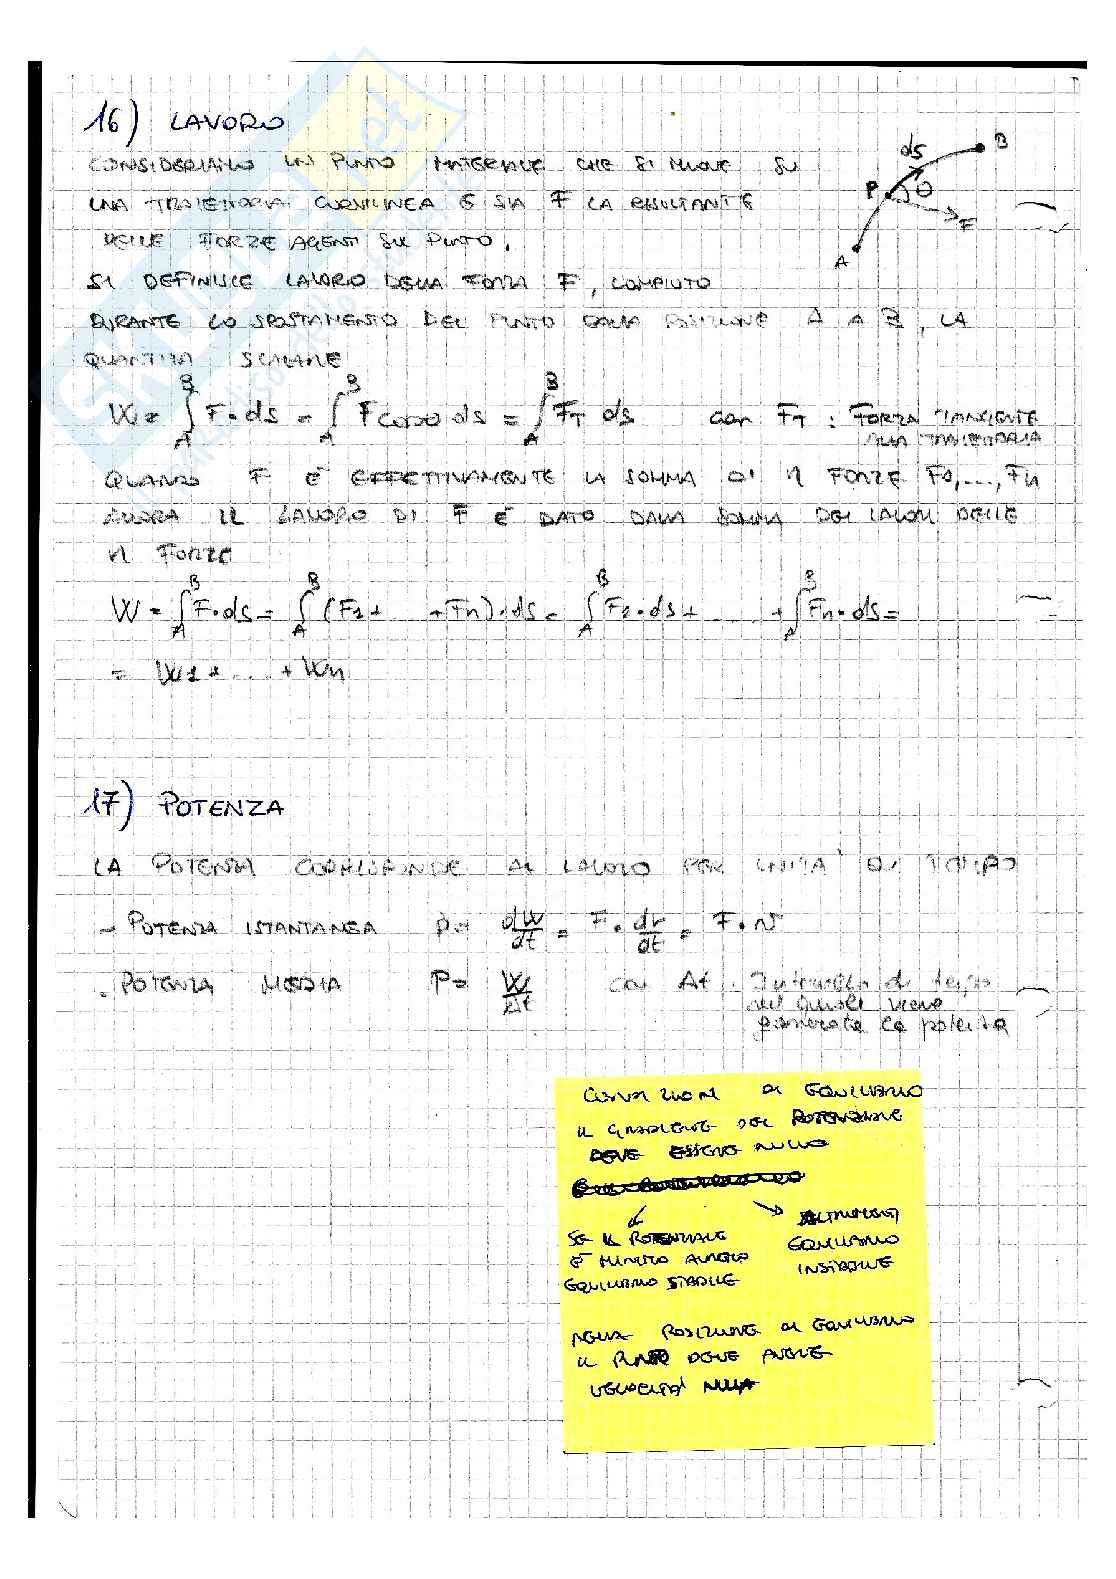 16) LAVORO
CONSIDERIAMO UN PUNTO MATERIALE CHE SI MUOVE SU
UNA TRAIETTORIA CURVILINEA E SIA F LA RISULTANTE
DELLE FORZE AGENTI SUL PUNTO.
SI DEFINISCE LAVORO DELLA FORZA F, COMPIUTO
DURANTE LO SPOSTAMENTO DEL PUNTO DALLA POSIZIONE A A B, LA
QUANTITÀ SCALARE
ds
B
P
θ
F
A
W = ∫_A^B F · ds = ∫_A^B F cosθ ds = ∫_A^B F_T ds con F_T : FORZA TANGENTE
ALLA TRAIETTORIA
QUANDO F È EFFETTIVAMENTE LA SOMMA DI n FORZE F1,...,Fn
ALLORA IL LAVORO DI F È DATO DALLA SOMMA DEI LAVORI DELLE
n FORZE
W = ∫_A^B F · ds = ∫_A^B (F1 + ... + Fn) · ds = ∫_A^B F1 · ds + ... + ∫_A^B Fn · ds =
= W1 + ... + Wn
17) POTENZA
LA POTENZA CORRISPONDE AL LAVORO PER UNITA' DI TEMPO
- POTENZA ISTANTANEA P = dW/dt = F · dr/dt = F · v
. POTENZA MEDIA P = W/Δt con Δt Intervallo di tempo
nel quale viene
generata la potenza
CONDIZIONI DI EQUILIBRIO
IL GRADIENTE DEL POTENZIALE
DEVE ESSERE NULLO
SE IL POTENZIALE
È MINIMO ALLORO
EQUILIBRIO STABILE
ALTRIMENTI
EQUILIBRIO
INSTABILE
NELLA POSIZIONE DI EQUILIBRIO
IL PUNTO DEVE AVERE
VELOCITÀ NULLA